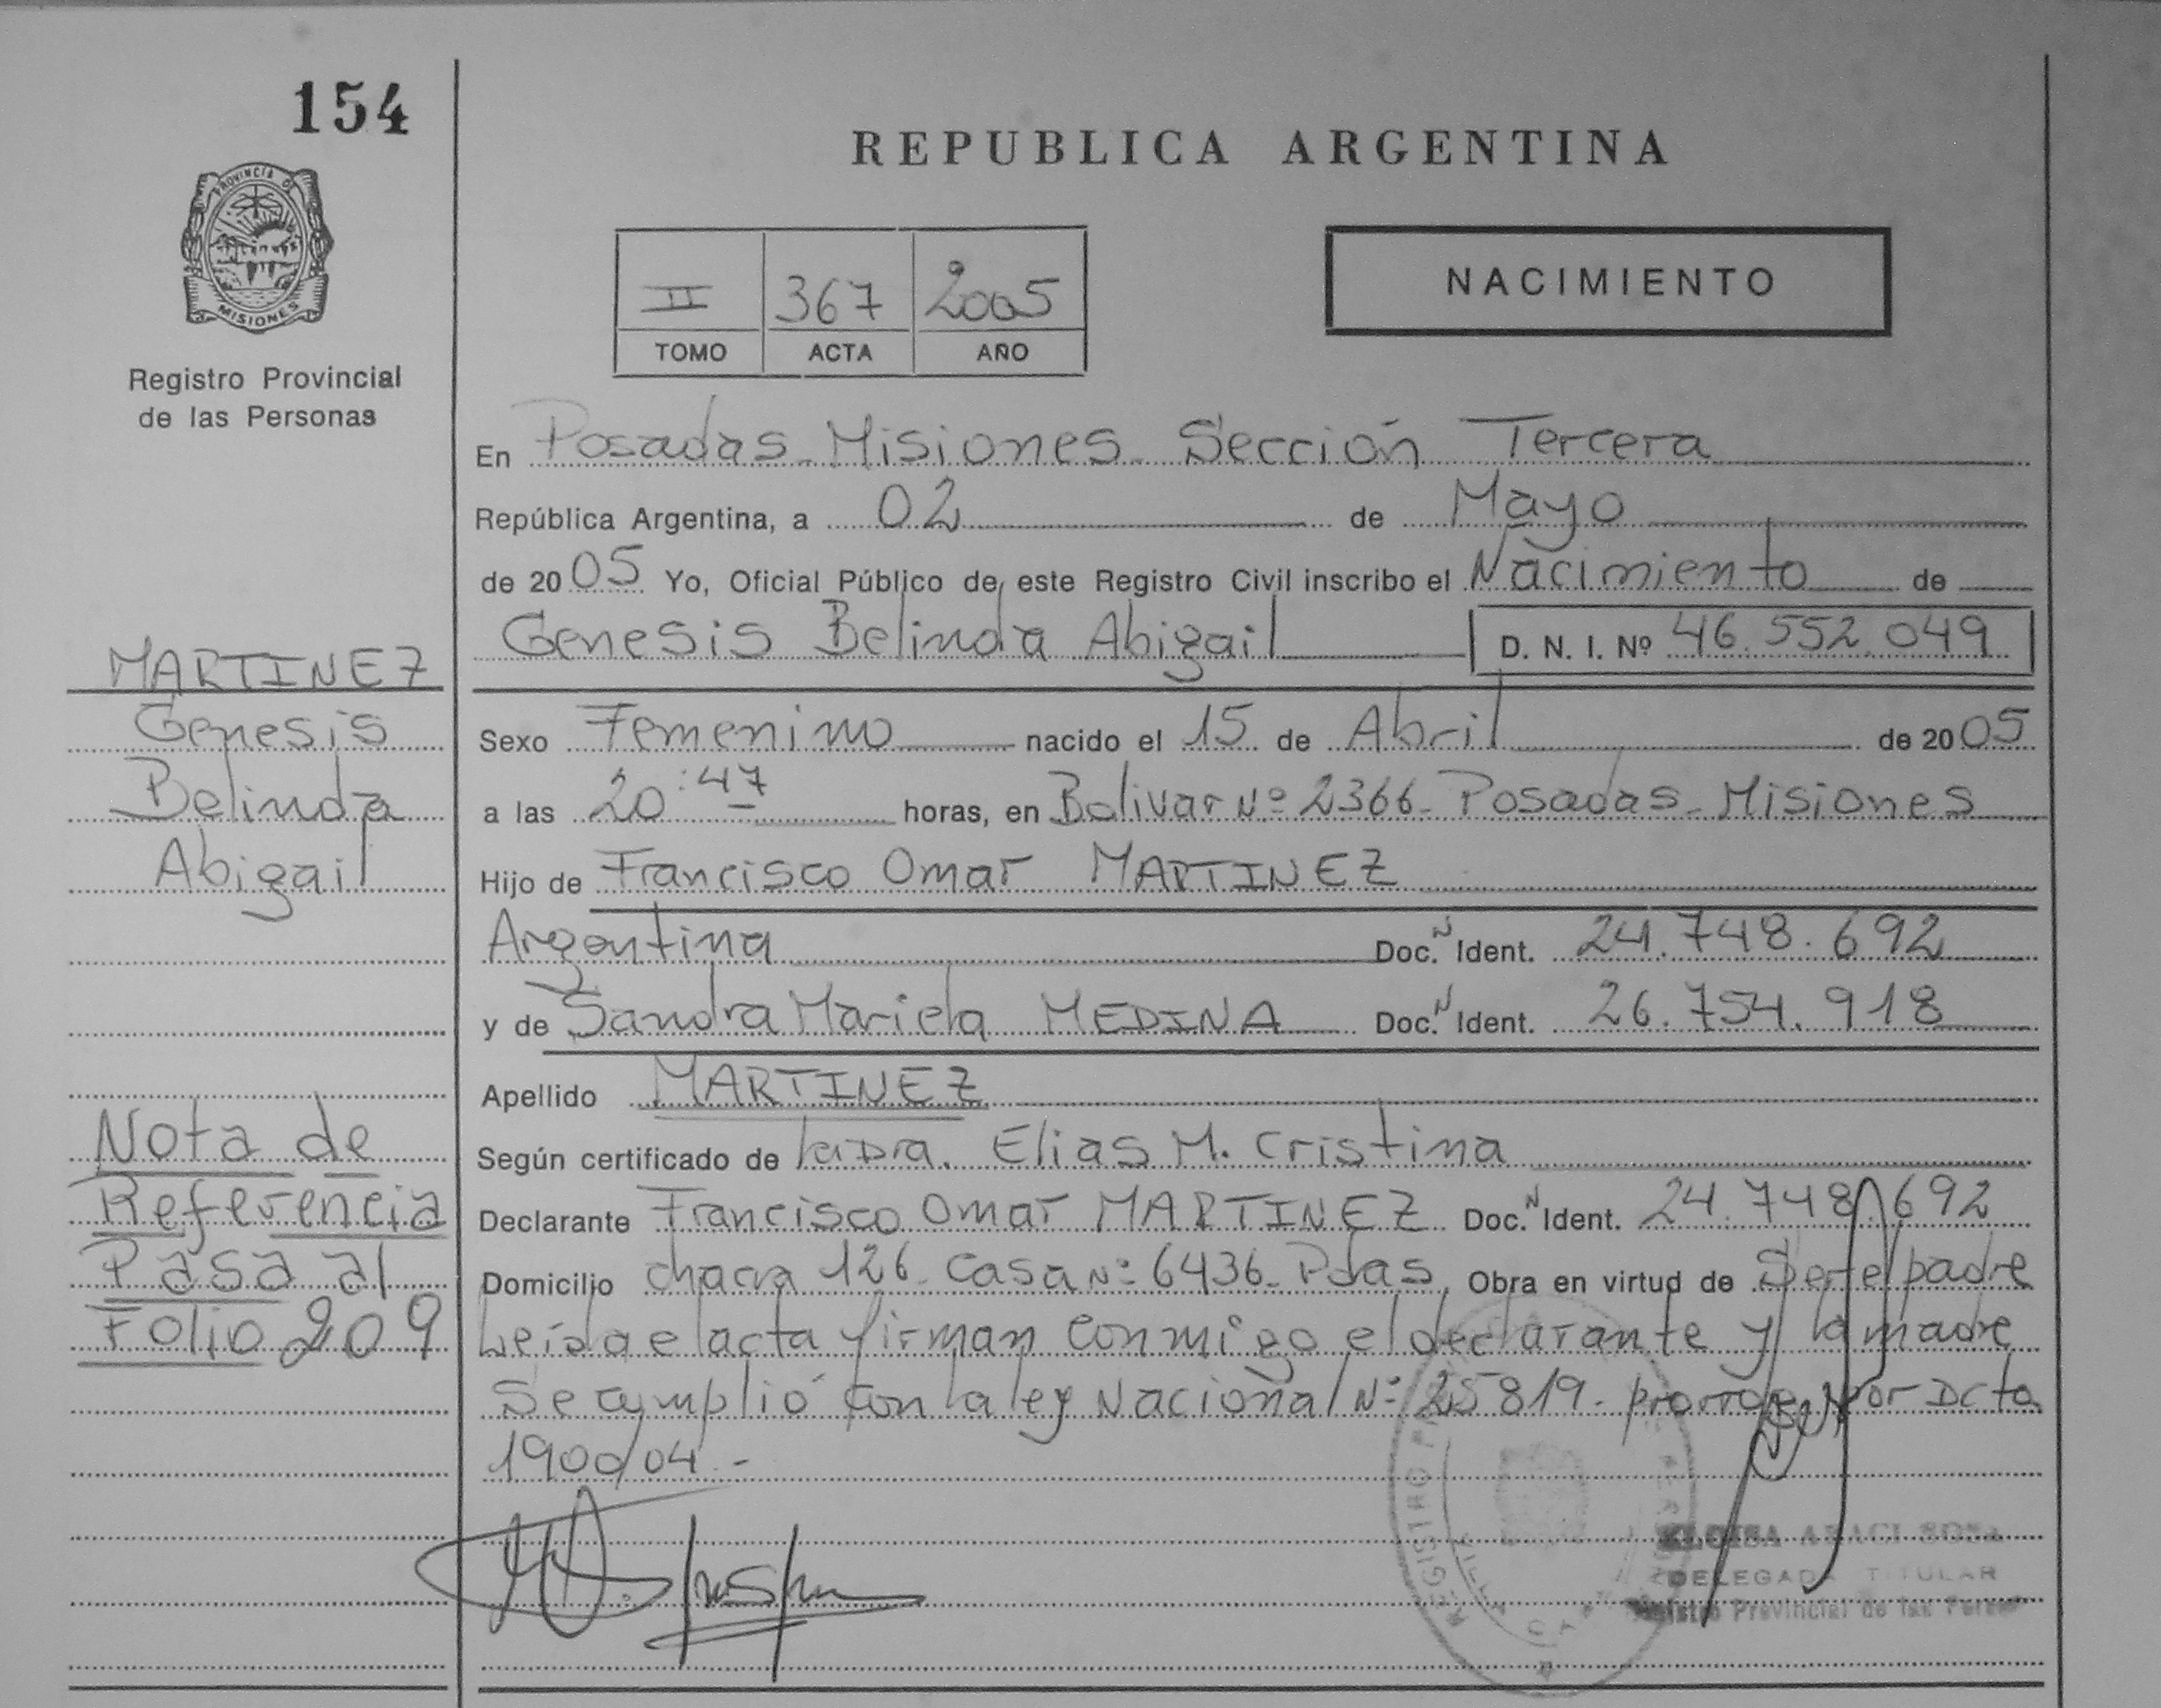 154
PROVINCIA DE
MISIONES
Registro Provincial
de las Personas
MARTINEZ
Genesis
Belinda
Abigail
Nota de
Referencia
Pasa al
Folio 209
REPUBLICA ARGENTINA
II 367 2005
TOMO ACTA AÑO
NACIMIENTO
En Posadas - Misiones - Sección Tercera
República Argentina, a 02 de Mayo
de 2005 Yo, Oficial Público de este Registro Civil inscribo el Nacimiento de
Genesis Belinda Abigail D. N. I. Nº 46.552.049
Sexo Femenino nacido el 15 de Abril de 2005
a las 20:47 horas, en Bolivar Nº 2366 - Posadas - Misiones
Hijo de Francisco Omar MARTINEZ
Argentina Doc. N Ident. 24.748.692
y de Sandra Mariela MEDINA Doc. N Ident. 26.754.918
Apellido MARTINEZ
Según certificado de la Dra. Elias M. Cristina
Declarante Francisco Omar MARTINEZ Doc. N Ident. 24.748.692
Domicilio chacra 126 - Casa Nº 6436 - Pdas. Obra en virtud de Ser el padre
Leída el acta firman conmigo el declarante y la madre
Se cumplió con la ley Nacional Nº 25819 - prorrog. por Dcto
1900/04 -
REGISTRO
ELOISA ARACI SOSA
DELEGADA TITULAR
Registro Provincial de las Personas